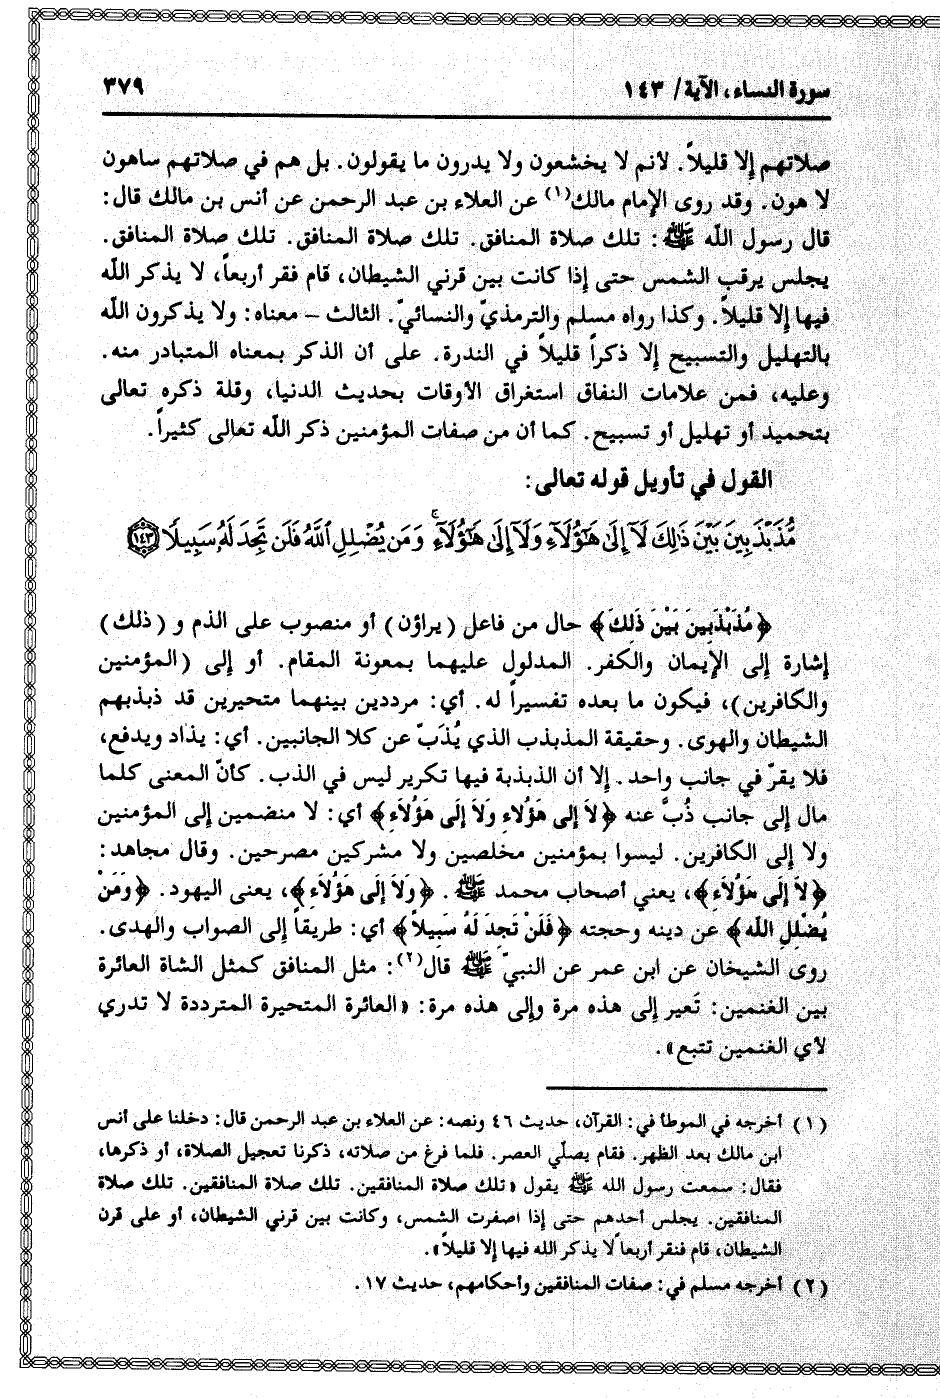 سورة النساء، الآية/ ١٤٣
٣٧٩
صلاتهم إلا قليلاً. لأنم لا يخشعون ولا يدرون ما يقولون. بل هم في صلاتهم ساهون
لا هون. وقد روى الإمام مالك(١) عن العلاء بن عبد الرحمن عن أنس بن مالك قال:
قال رسول الله ﷺ: تلك صلاة المنافق. تلك صلاة المنافق. تلك صلاة المنافق.
يجلس يرقب الشمس حتى إذا كانت بين قرني الشيطان، قام فقر أربعاً، لا يذكر الله
فيها إلا قليلاً. وكذا رواه مسلم والترمذيّ والنسائيّ. الثالث – معناه: ولا يذكرون الله
بالتهليل والتسبيح إلا ذكراً قليلاً في الندرة. على أن الذكر بمعناه المتبادر منه.
وعليه، فمن علامات النفاق استغراق الأوقات بحديث الدنيا، وقلة ذكره تعالى
بتحميد أو تهليل أو تسبيح. كما أن من صفات المؤمنين ذكر الله تعالى كثيراً.
القول في تأويل قوله تعالى:
مُّذَبْذَبِينَ بَيْنَ ذَٰلِكَ لَآ إِلَىٰ هَٰٓؤُلَآءِ وَلَآ إِلَىٰ هَٰٓؤُلَآءِ ۚ وَمَن يُضْلِلِ ٱللَّهُ فَلَن تَجِدَ لَهُۥ سَبِيلًا ١٤٣
﴿مُذَبْذَبِينَ بَيْنَ ذَلِكَ﴾ حال من فاعل (يراؤن) أو منصوب على الذم و (ذلك)
إشارة إلى الإيمان والكفر. المدلول عليهما بمعونة المقام. أو إلى (المؤمنين
والكافرين)، فيكون ما بعده تفسيراً له. أي: مرددين بينهما متحيرين قد ذبذبهم
الشيطان والهوى. وحقيقة المذبذب الذي يُذَبّ عن كلا الجانبين. أي: يذاد ويدفع،
فلا يقرّ في جانب واحد. إلا أن الذبذبة فيها تكرير ليس في الذب. كأنّ المعنى كلما
مال إلى جانب ذُبَّ عنه ﴿لاَ إلى هَؤُلاءِ وَلاَ إلَى هَؤُلاَءِ﴾ أي: لا منضمين إلى المؤمنين
ولا إلى الكافرين. ليسوا بمؤمنين مخلصين ولا مشركين مصرحين. وقال مجاهد:
﴿لاَ إلَى هَؤُلاَءِ﴾، يعني أصحاب محمد ﷺ. ﴿وَلاَ إلَى هَؤُلاَءِ﴾، يعنى اليهود. ﴿وَمَنْ
يُضْلِلِ اللَّه﴾ عن دينه وحجته ﴿فَلَنْ تَجِدَ لَهُ سَبِيلاً﴾ أي: طريقاً إلى الصواب والهدى.
روى الشيخان عن ابن عمر عن النبيّ ﷺ قال(٢): مثل المنافق كمثل الشاة العائرة
بين الغنمين: تَعير إلى هذه مرة وإلى هذه مرة: «العائرة المتحيرة المترددة لا تدري
لأي الغنمين تتبع».
(١) أخرجه في الموطأ في: القرآن، حديث ٤٦ ونصه: عن العلاء بن عبد الرحمن قال: دخلنا على أنس
ابن مالك بعد الظهر. فقام يصلّي العصر. فلما فرغ من صلاته، ذكرنا تعجيل الصلاة، أو ذكرها،
فقال: سمعت رسول الله ﷺ يقول «تلك صلاة المنافقين. تلك صلاة المنافقين. تلك صلاة
المنافقين. يجلس أحدهم حتى إذا اصفرت الشمس، وكانت بين قرني الشيطان، أو على قرن
الشيطان، قام فنقر أربعاً لا يذكر الله فيها إلا قليلاً».
(٢) أخرجه مسلم في: صفات المنافقين وأحكامهم، حديث ١٧.